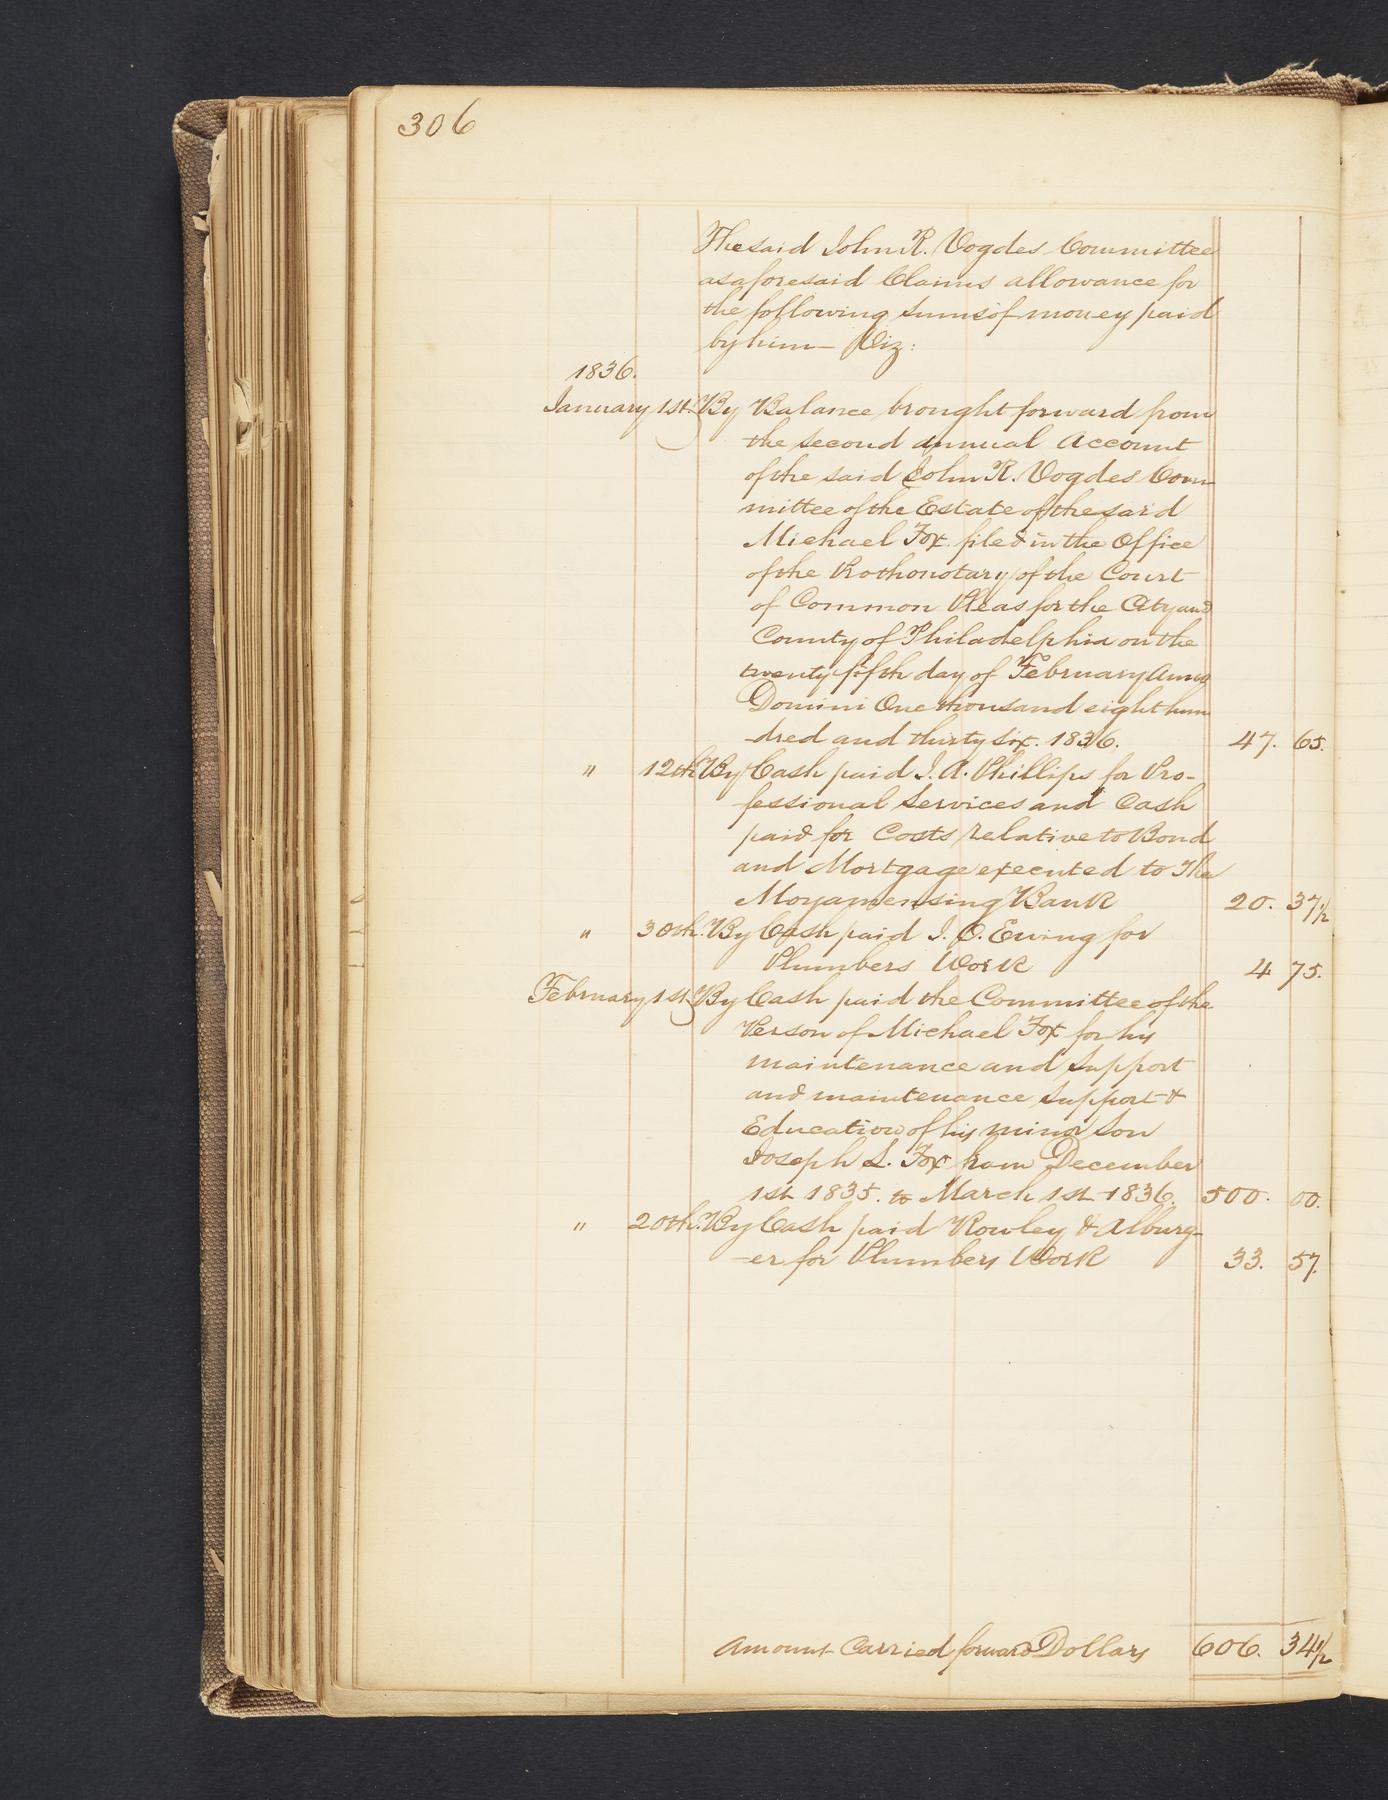 306
The said John R. Vogdes Committee
as aforesaid Claims allowance for
the following sums of money paid
by him — Viz:
1836.
January 1st. By Balance brought forward from
the second annual Account
of the said John R. Vogdes Com
mittee of the Estate of the said
Michael Fox filed in the Office
of the Prothonotary of the Court
of Common Pleas for the City and
County of Philadelphia on the
twenty fifth day of February Anno
Domini One thousand eight hun
-dred and thirty six. 1836. 47. 65.
" 12th By Cash paid I. A. Phillips for Pro-
fessional Services and Cash
paid for Costs relative to Bond
and Mortgage executed to The
Moyamensing Bank 20. 37 1/2
" 30th. By Cash paid I. O. Ewing for
Plumbers Work 4 75.
February 1st By Cash paid the Committee of the
Person of Michael Fox for his
maintenance and Support
and maintenance Support &
Education of his minor Son
Joseph S. Fox from December
1st 1835. to March 1st 1836. 500. 00.
" 20th. By Cash paid Rowley & Alburg-
-er for Plumbers Work 33. 57.
Amount Carried forward Dollars 606. 34 1/2